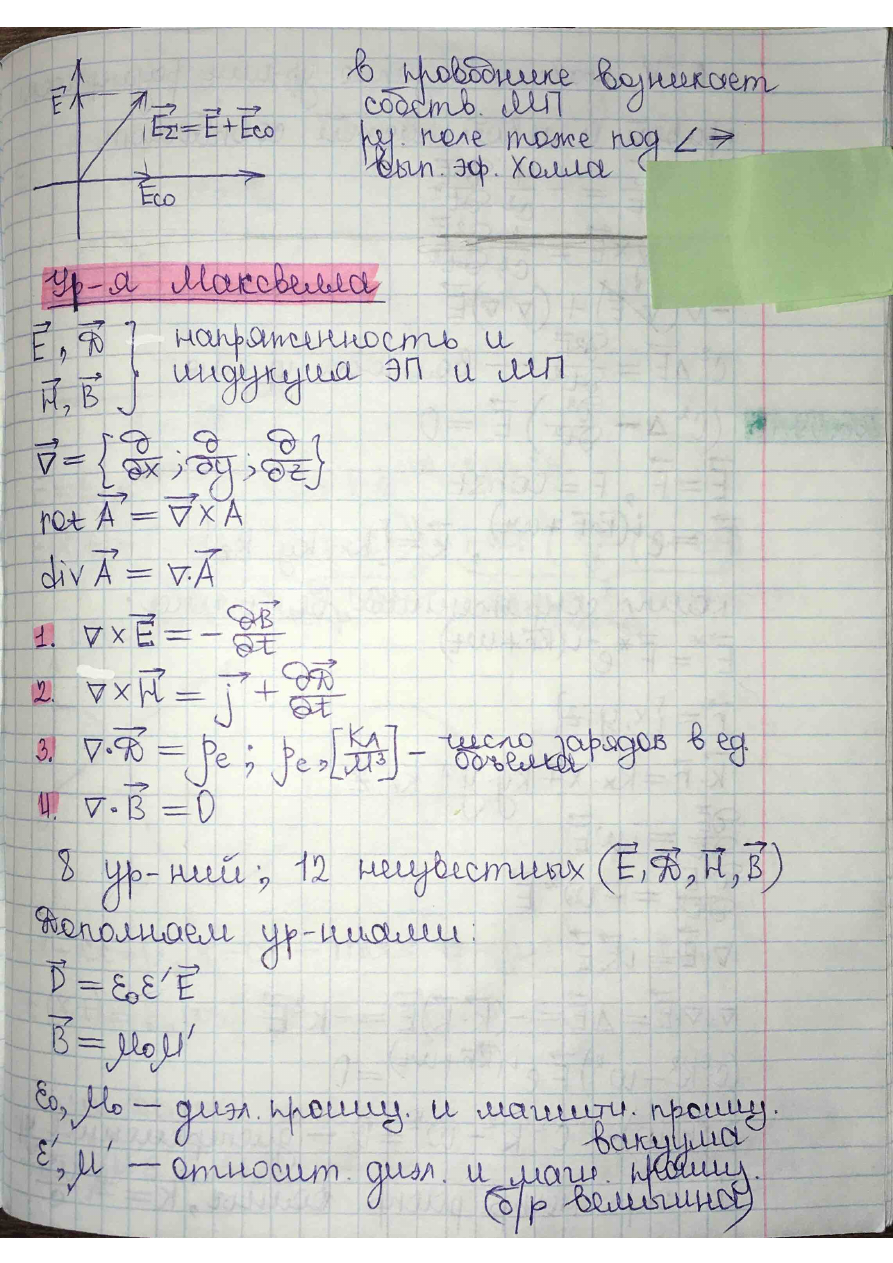 в проводнике возникает
собств. МП
E⃗
E⃗Σ = E⃗ + E⃗co
поле тоже под ∠ ⇒
вып. эф. Холла
Eco
Ур-я Максвелла
E⃗, D⃗ } напряженность и
H⃗, B⃗ } индукция ЭП и МП
∇⃗ = {∂/∂x ; ∂/∂y ; ∂/∂z}
rot A⃗ = ∇⃗ × A
div A⃗ = ∇·A⃗
1. ∇ × E⃗ = − ∂B⃗/∂t
2. ∇ × H⃗ = j⃗ + ∂D⃗/∂t
3. ∇·D⃗ = ρe ; ρe, [Кл/м³] − число зарядов в ед.
объема
4. ∇·B⃗ = 0
8 ур-ний; 12 неизвестных (E⃗, D⃗, H⃗, B⃗)
Дополняем ур-ниями:
D⃗ = ε₀ε′E⃗
B⃗ = μ₀μ′
ε₀, μ₀ — диэл. прониц. и магнитн. прониц.
вакуума
ε′, μ′ — относит. диэл. и магн. прониц.
(б/р величина)